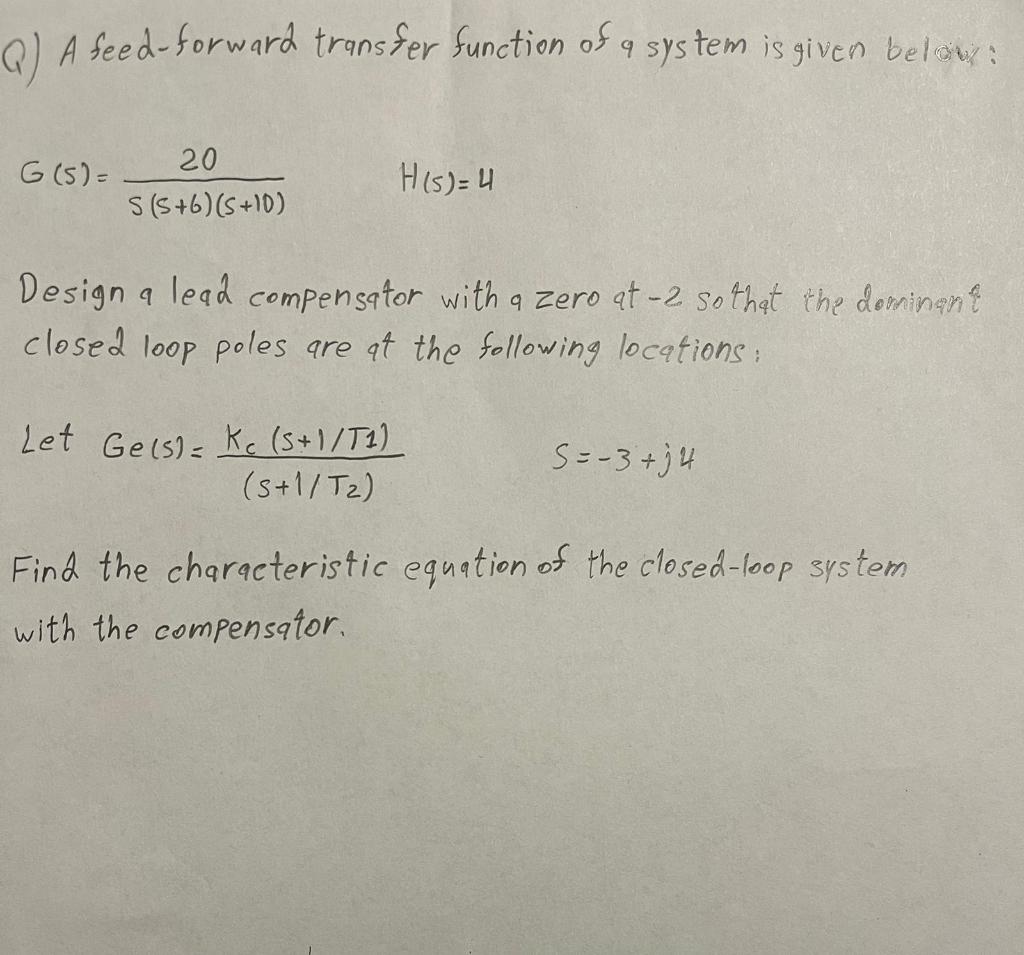 Q) A feed-forward transfer function of a system is given below:
G(s)= 20 / S(S+6)(S+10) H(s)=4
Design a lead compensator with a zero at -2 so that the dominant
closed loop poles are at the following locations:
Let Ge(s)= Kc (S+1/T1) / (S+1/T2) S=-3+j4
Find the characteristic equation of the closed-loop system
with the compensator.